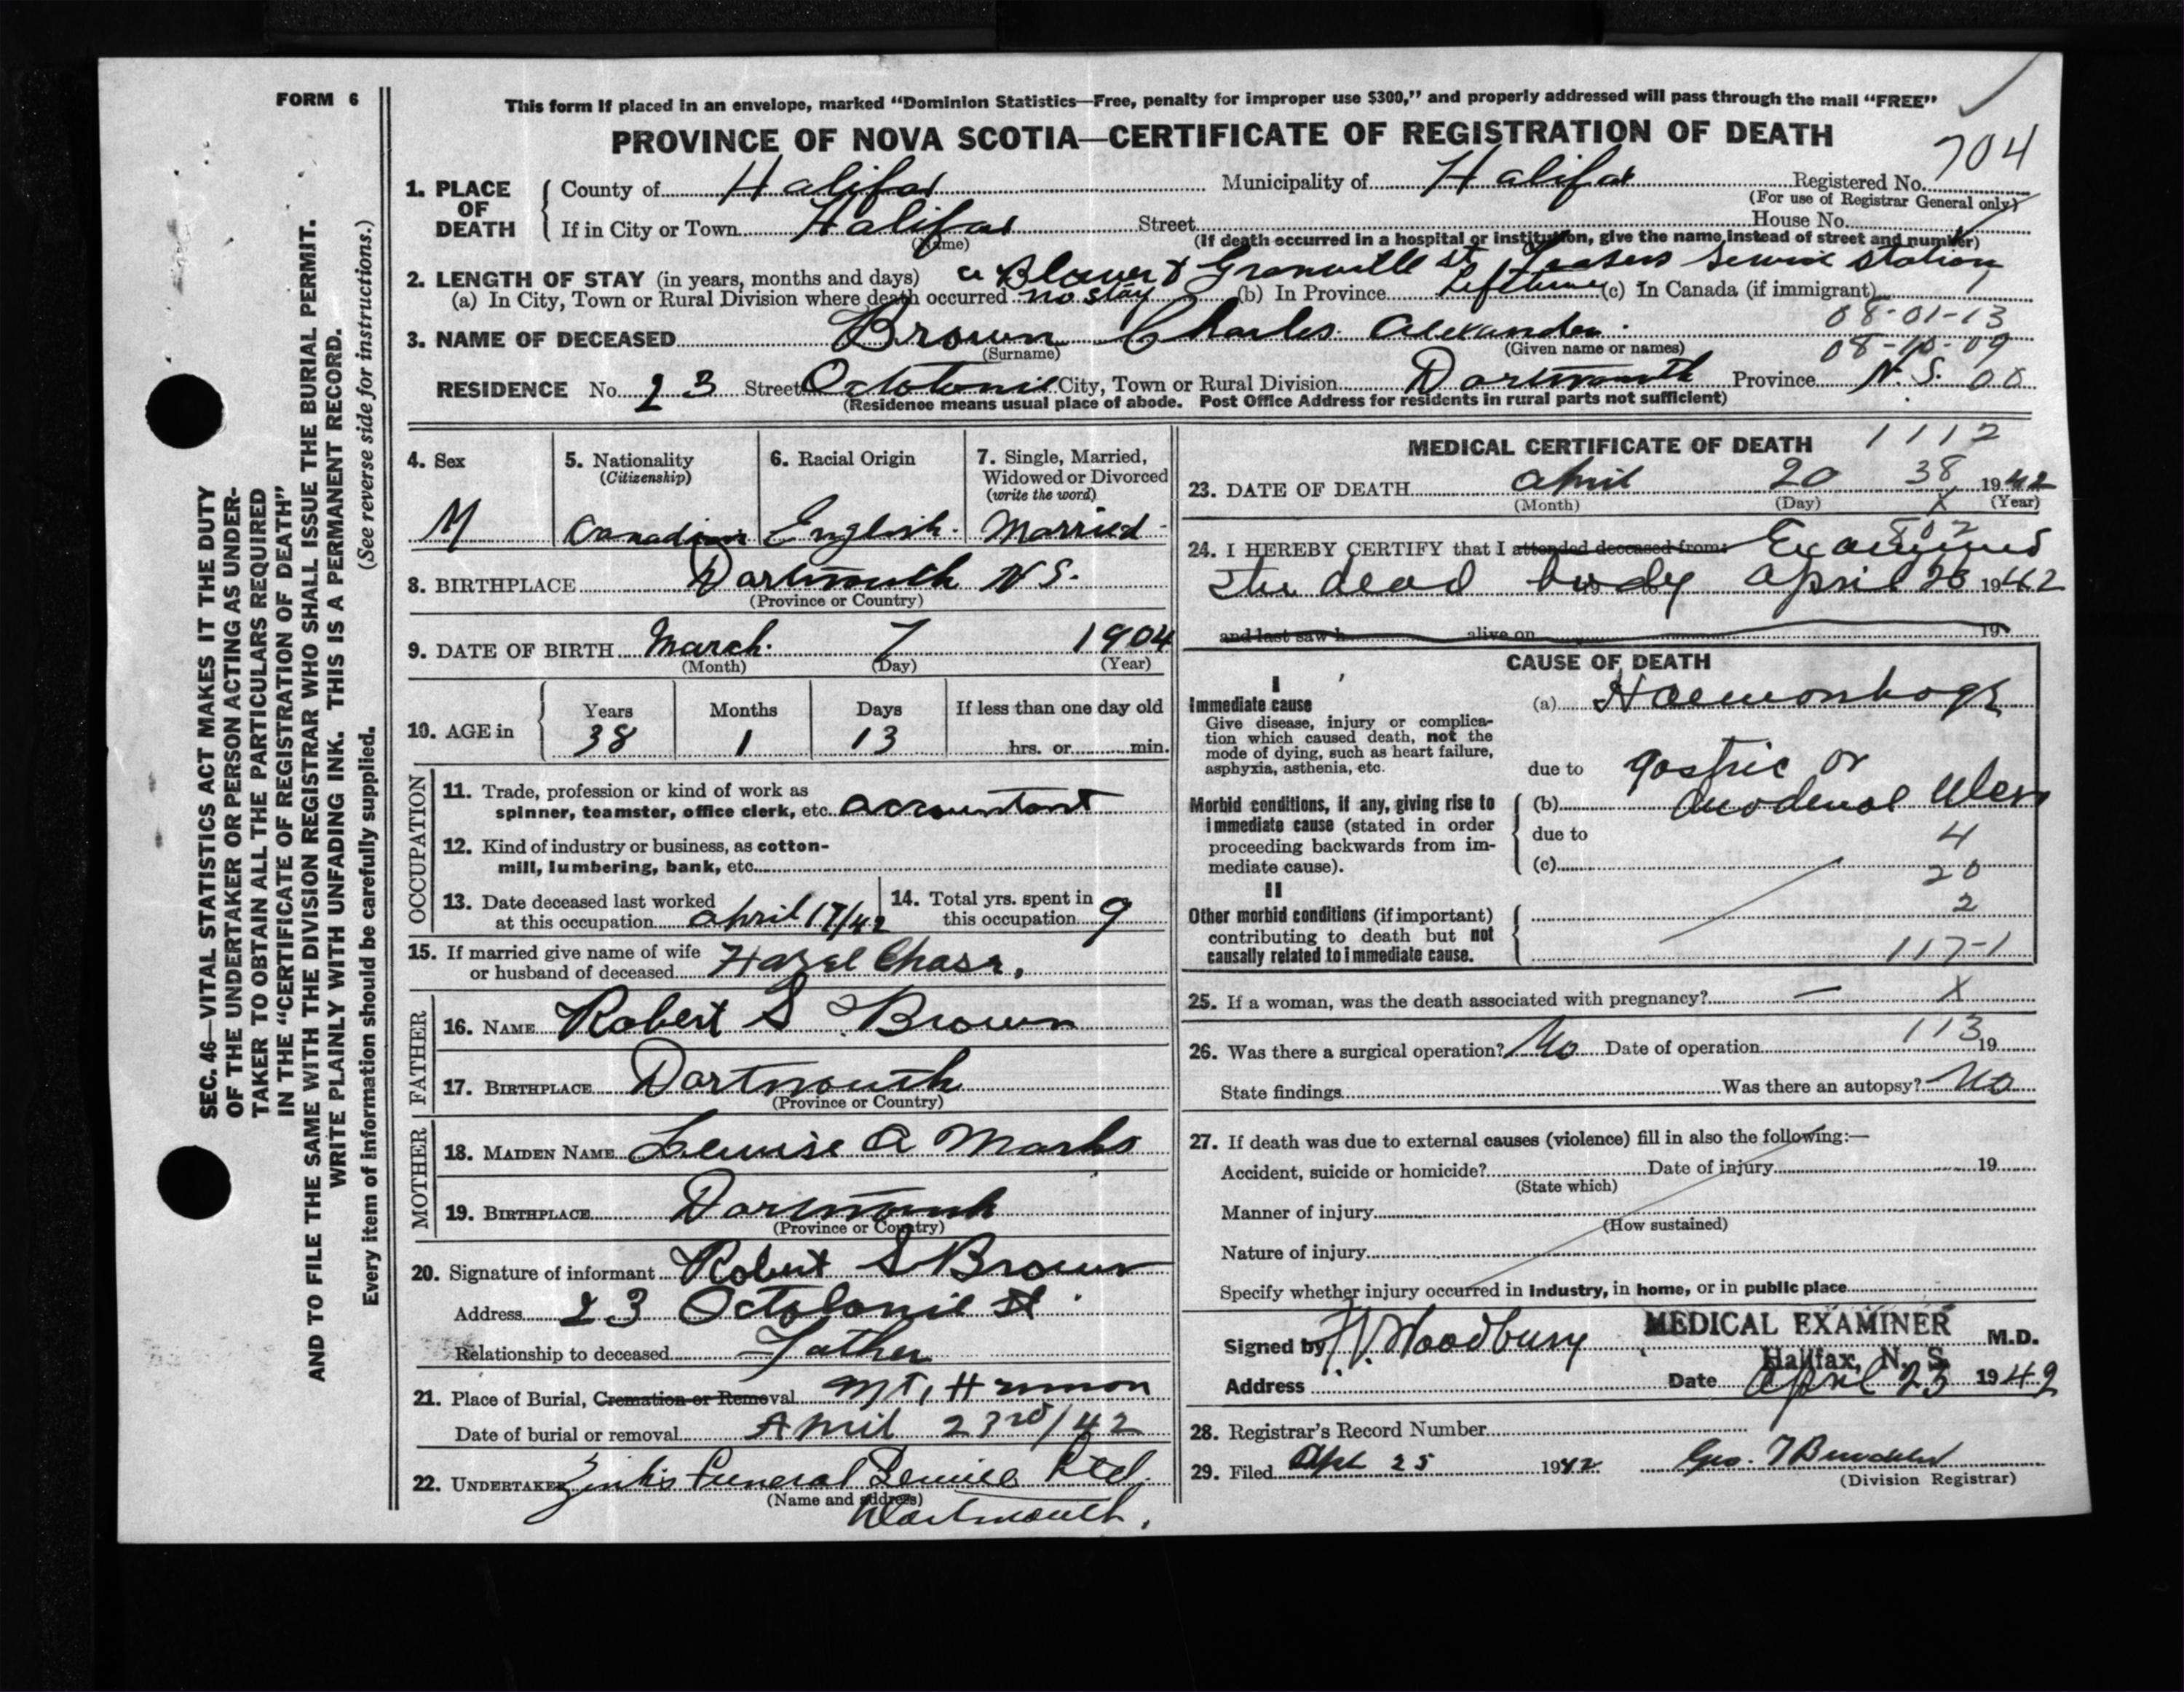 FORM 6
This form if placed in an envelope, marked "Dominion Statistics—Free, penalty for improper use $300," and properly addressed will pass through the mail "FREE"
PROVINCE OF NOVA SCOTIA—CERTIFICATE OF REGISTRATION OF DEATH
704
1. PLACE OF DEATH
County of Halifax Municipality of Halifax Registered No.
(For use of Registrar General only)
If in City or Town Halifax Street House No.
(Name) (If death occurred in a hospital or institution, give the name instead of street and number)
Granville St Service Station
2. LENGTH OF STAY (in years, months and days)
(a) In City, Town or Rural Division where death occurred no stay (b) In Province Lifetime (c) In Canada (if immigrant)
08-01-13
3. NAME OF DECEASED Brown Charles Alexander
(Surname) (Given name or names)
08-10-09
RESIDENCE No. 23 Street City, Town or Rural Division Dartmouth Province N.S. 00
(Residence means usual place of abode. Post Office Address for residents in rural parts not sufficient)
4. Sex
M
5. Nationality
(Citizenship)
Canadian
6. Racial Origin
English
7. Single, Married,
Widowed or Divorced
(write the word)
Married
8. BIRTHPLACE Dartmouth N S.
(Province or Country)
9. DATE OF BIRTH March 7 1904
(Month) (Day) (Year)
10. AGE in
Years Months Days If less than one day old
38 1 13 hrs. or min.
OCCUPATION
11. Trade, profession or kind of work as
spinner, teamster, office clerk, etc. accountant
12. Kind of industry or business, as cotton-
mill, lumbering, bank, etc.
13. Date deceased last worked
at this occupation April 17/42
14. Total yrs. spent in
this occupation 9
15. If married give name of wife
or husband of deceased Hazel Chase,
FATHER
16. NAME Robert S Brown
17. BIRTHPLACE Dartmouth
(Province or Country)
MOTHER
18. MAIDEN NAME Lewise A Marks
19. BIRTHPLACE Dartmouth
(Province or Country)
20. Signature of informant Robert S Brown
Address 23 St
Relationship to deceased Father
21. Place of Burial, Cremation or Removal Mt, Hermon
Date of burial or removal April 23rd/42
22. UNDERTAKER Zink's Funeral Service Ltd.
(Name and address)
Dartmouth.
MEDICAL CERTIFICATE OF DEATH 1112
23. DATE OF DEATH April 20 38 1942
(Month) (Day) X (Year)
802
24. I HEREBY CERTIFY that I attended deceased from: Examined
the dead body April 20 1942
and last saw h alive on 19
CAUSE OF DEATH
I
Immediate cause
Give disease, injury or complica-
tion which caused death, not the
mode of dying, such as heart failure,
asphyxia, asthenia, etc.
(a) Haemorrhage
due to gastric or
Morbid conditions, if any, giving rise to
immediate cause (stated in order
proceeding backwards from im-
mediate cause).
(b) duodenal ulcer
due to 4
(c) 20
II
Other morbid conditions (if important)
contributing to death but not
causally related to immediate cause.
2
117-1
25. If a woman, was the death associated with pregnancy? — X
113
26. Was there a surgical operation? No Date of operation 19
State findings Was there an autopsy? No
27. If death was due to external causes (violence) fill in also the following:—
Accident, suicide or homicide? Date of injury 19
(State which)
Manner of injury
(How sustained)
Nature of injury
Specify whether injury occurred in industry, in home, or in public place
Signed by Woodbury MEDICAL EXAMINER M.D.
Halifax, N. S.
Address Date April 23 1942
28. Registrar's Record Number
29. Filed Apl 25 1942 Geo.
(Division Registrar)
SEC. 46—VITAL STATISTICS ACT MAKES IT THE DUTY
OF THE UNDERTAKER OR PERSON ACTING AS UNDER-
TAKER TO OBTAIN ALL THE PARTICULARS REQUIRED
IN THE "CERTIFICATE OF REGISTRATION OF DEATH"
AND TO FILE THE SAME WITH THE DIVISION REGISTRAR WHO SHALL ISSUE THE BURIAL PERMIT.
WRITE PLAINLY WITH UNFADING INK. THIS IS A PERMANENT RECORD.
(See reverse side for instructions.)
Every item of information should be carefully supplied.